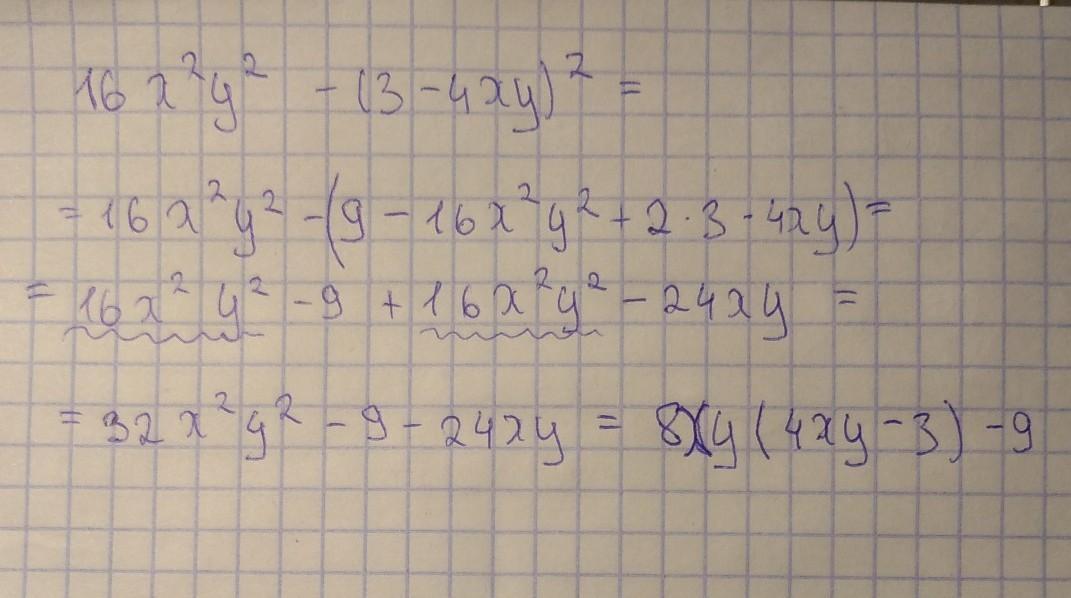 16 x²y² - (3 - 4xy)² =
= 16x²y² - (9 - 16x²y² + 2·3·4xy) =
= 16x² y² - 9 + 16x²y² - 24xy =
= 32x²y² - 9 - 24xy = 8xy(4xy - 3) - 9